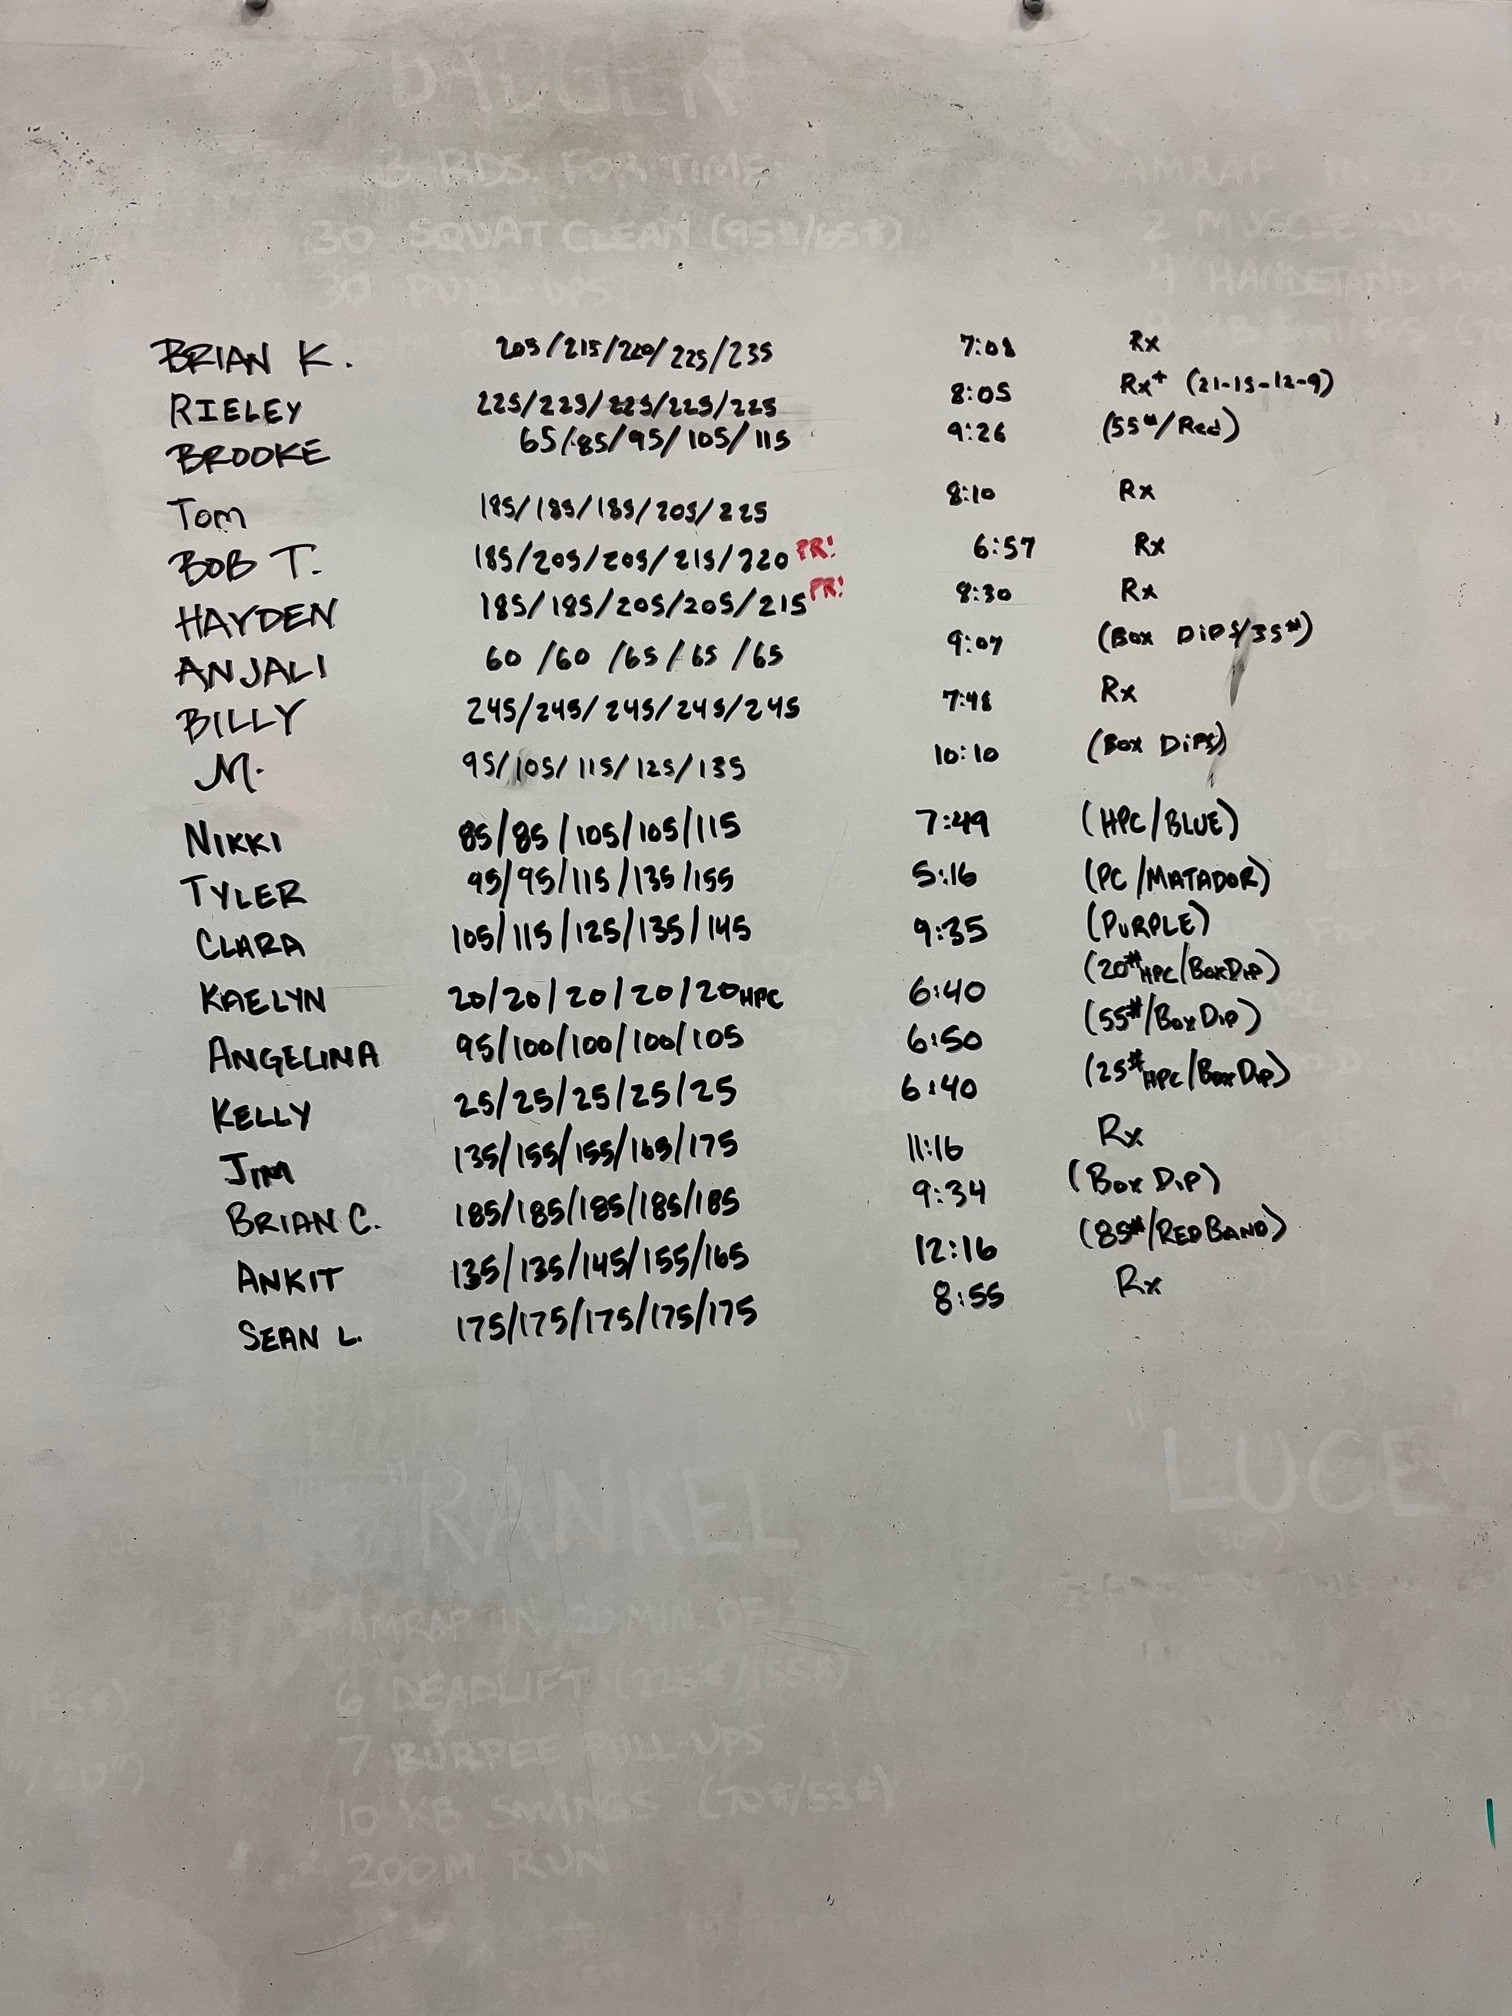 3 RDS. FOR TIME
30 SQUAT CLEAN (95#/65#)
30 PULL-UPS
AMRAP IN 20
2 MUSCLE-UPS
4 HANDSTAND
BRIAN K. 205/215/220/225/235 7:08 Rx
RIELEY 225/225/225/225/225 8:05 Rx+ (21-15-12-9)
BROOKE 65/85/95/105/115 9:26 (55#/Red)
Tom 185/185/185/205/225 8:10 Rx
BOB T. 185/205/205/215/220 PR! 6:57 Rx
HAYDEN 185/185/205/205/215 PR! 8:30 Rx
ANJALI 60/60/65/65/65 9:07 (Box DiPS/35#)
BILLY 245/245/245/245/245 7:48 Rx
M. 95/105/115/125/135 10:10 (Box DiPS)
NIKKI 85/85/105/105/115 7:49 (HPC/BLUE)
TYLER 95/95/115/135/155 5:16 (PC/MATADOR)
CLARA 105/115/125/135/145 9:35 (PURPLE)
KAELYN 20/20/20/20/20 HPC 6:40 (20# HPC/Box Dip)
ANGELINA 95/100/100/100/105 6:50 (55#/Box Dip)
KELLY 25/25/25/25/25 6:40 (25# HPC/Box Dip)
JIM 135/155/155/165/175 11:16 Rx
BRIAN C. 185/185/185/185/185 9:34 (Box Dip)
ANKIT 135/135/145/155/165 12:16 (85#/RED BAND)
SEAN L. 175/175/175/175/175 8:55 Rx
"RANKEL
"LUCE"
AMRAP IN 20 MIN. OF:
6 DEADLIFT (225#/155#)
7 BURPEE PULL-UPS
10 KB SWINGS (70#/53#)
200M RUN